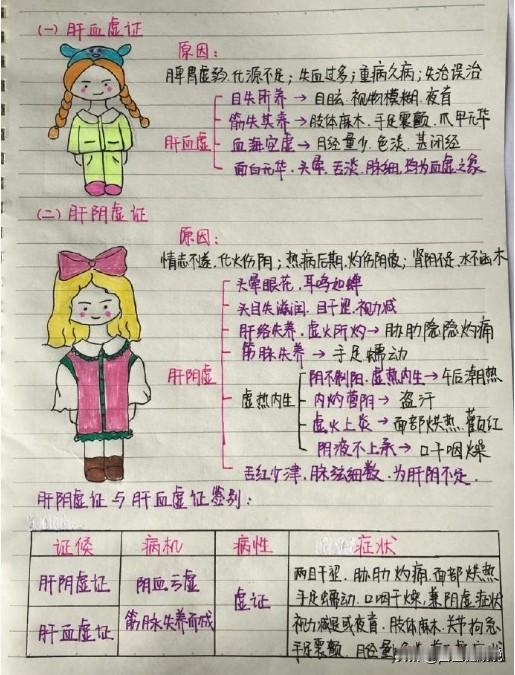 (一) 肝血虚证
原因:
脾胃虚弱、化源不足; 失血过多; 重病久病; 失治误治
肝血虚
目失所养 → 目眩、视物模糊、夜盲
筋失其养 → 肢体麻木、手足震颤、爪甲无华
血海空虚 → 月经量少、色淡、甚闭经
面白无华、头晕、舌淡、脉细,均为血虚之象
(二) 肝阴虚证
原因:
情志不遂、化火伤阴; 热病后期、灼伤阴液; 肾阴不足、水不涵木
肝阴虚
头晕眼花、耳鸣如蝉
头目失滋润、目干涩、视力减
肝络失养、虚火所灼 → 胁肋隐隐灼痛
筋脉失养 → 手足蠕动
虚热内生
阴不制阳、虚热内生 → 午后潮热
内灼营阴 → 盗汗
虚火上炎 → 面部烘热、颧红
阴液不上承 → 口干咽燥
舌红少津、脉弦细数、为肝阴不足.
肝阴虚证与肝血虚证鉴别:
证候 病机 病性 症状
肝阴虚证 阴血亏虚 虚证 两目干涩、胁肋灼痛、面部烘热
手足蠕动、口咽干燥、兼阴虚症状
肝血虚证 筋脉失养而成 视力减退或夜盲、肢体麻木、关节拘急
手足震颤、月经量